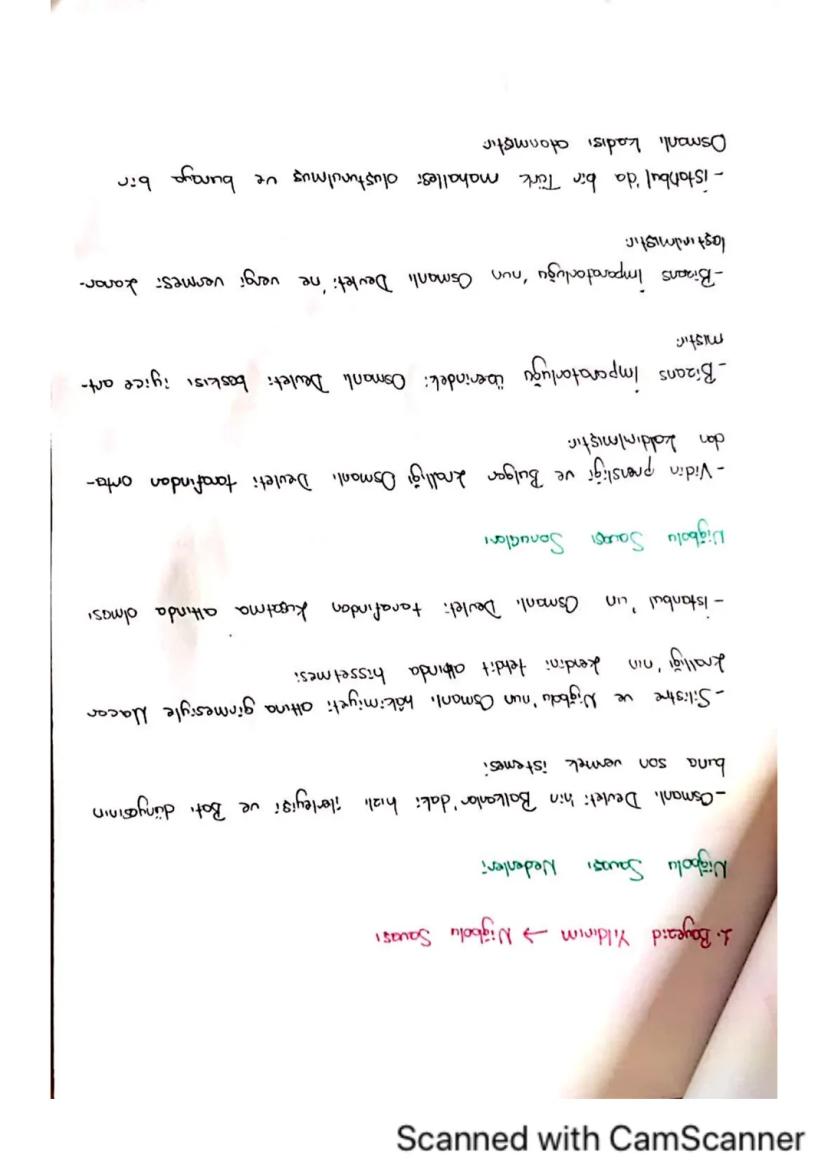 1. Bayezid Yıldırım → Niğbolu Savaşı
Niğbolu Savaşı Nedenleri
-Osmanlı Devleti'nin Balkanlar'daki hızlı ilerleyişi ve Batı dünyasının
buna son vermek istemesi
-Silistre ve Niğbolu'nun Osmanlı hâkimiyeti altına girmesiyle Macar
krallığı'nın kendini tehdit altında hissetmesi
-İstanbul'un Osmanlı Devleti tarafından kuşatma altında olması
Niğbolu Savaşı Sonuçları
-Vidin prensliği ve Bulgar krallığı Osmanlı Devleti tarafından orta-
dan kaldırılmıştır
-Bizans İmparatorluğu üzerindeki Osmanlı Devleti baskısı iyice art-
mıştır
-Bizans İmparatorluğu'nun Osmanlı Devleti'ne vergi vermesi karar-
laştırılmıştır
-İstanbul'da bir Türk mahallesi oluşturulmuş ve buraya bir
Osmanlı kadısı atanmıştır
Scanned with CamScanner